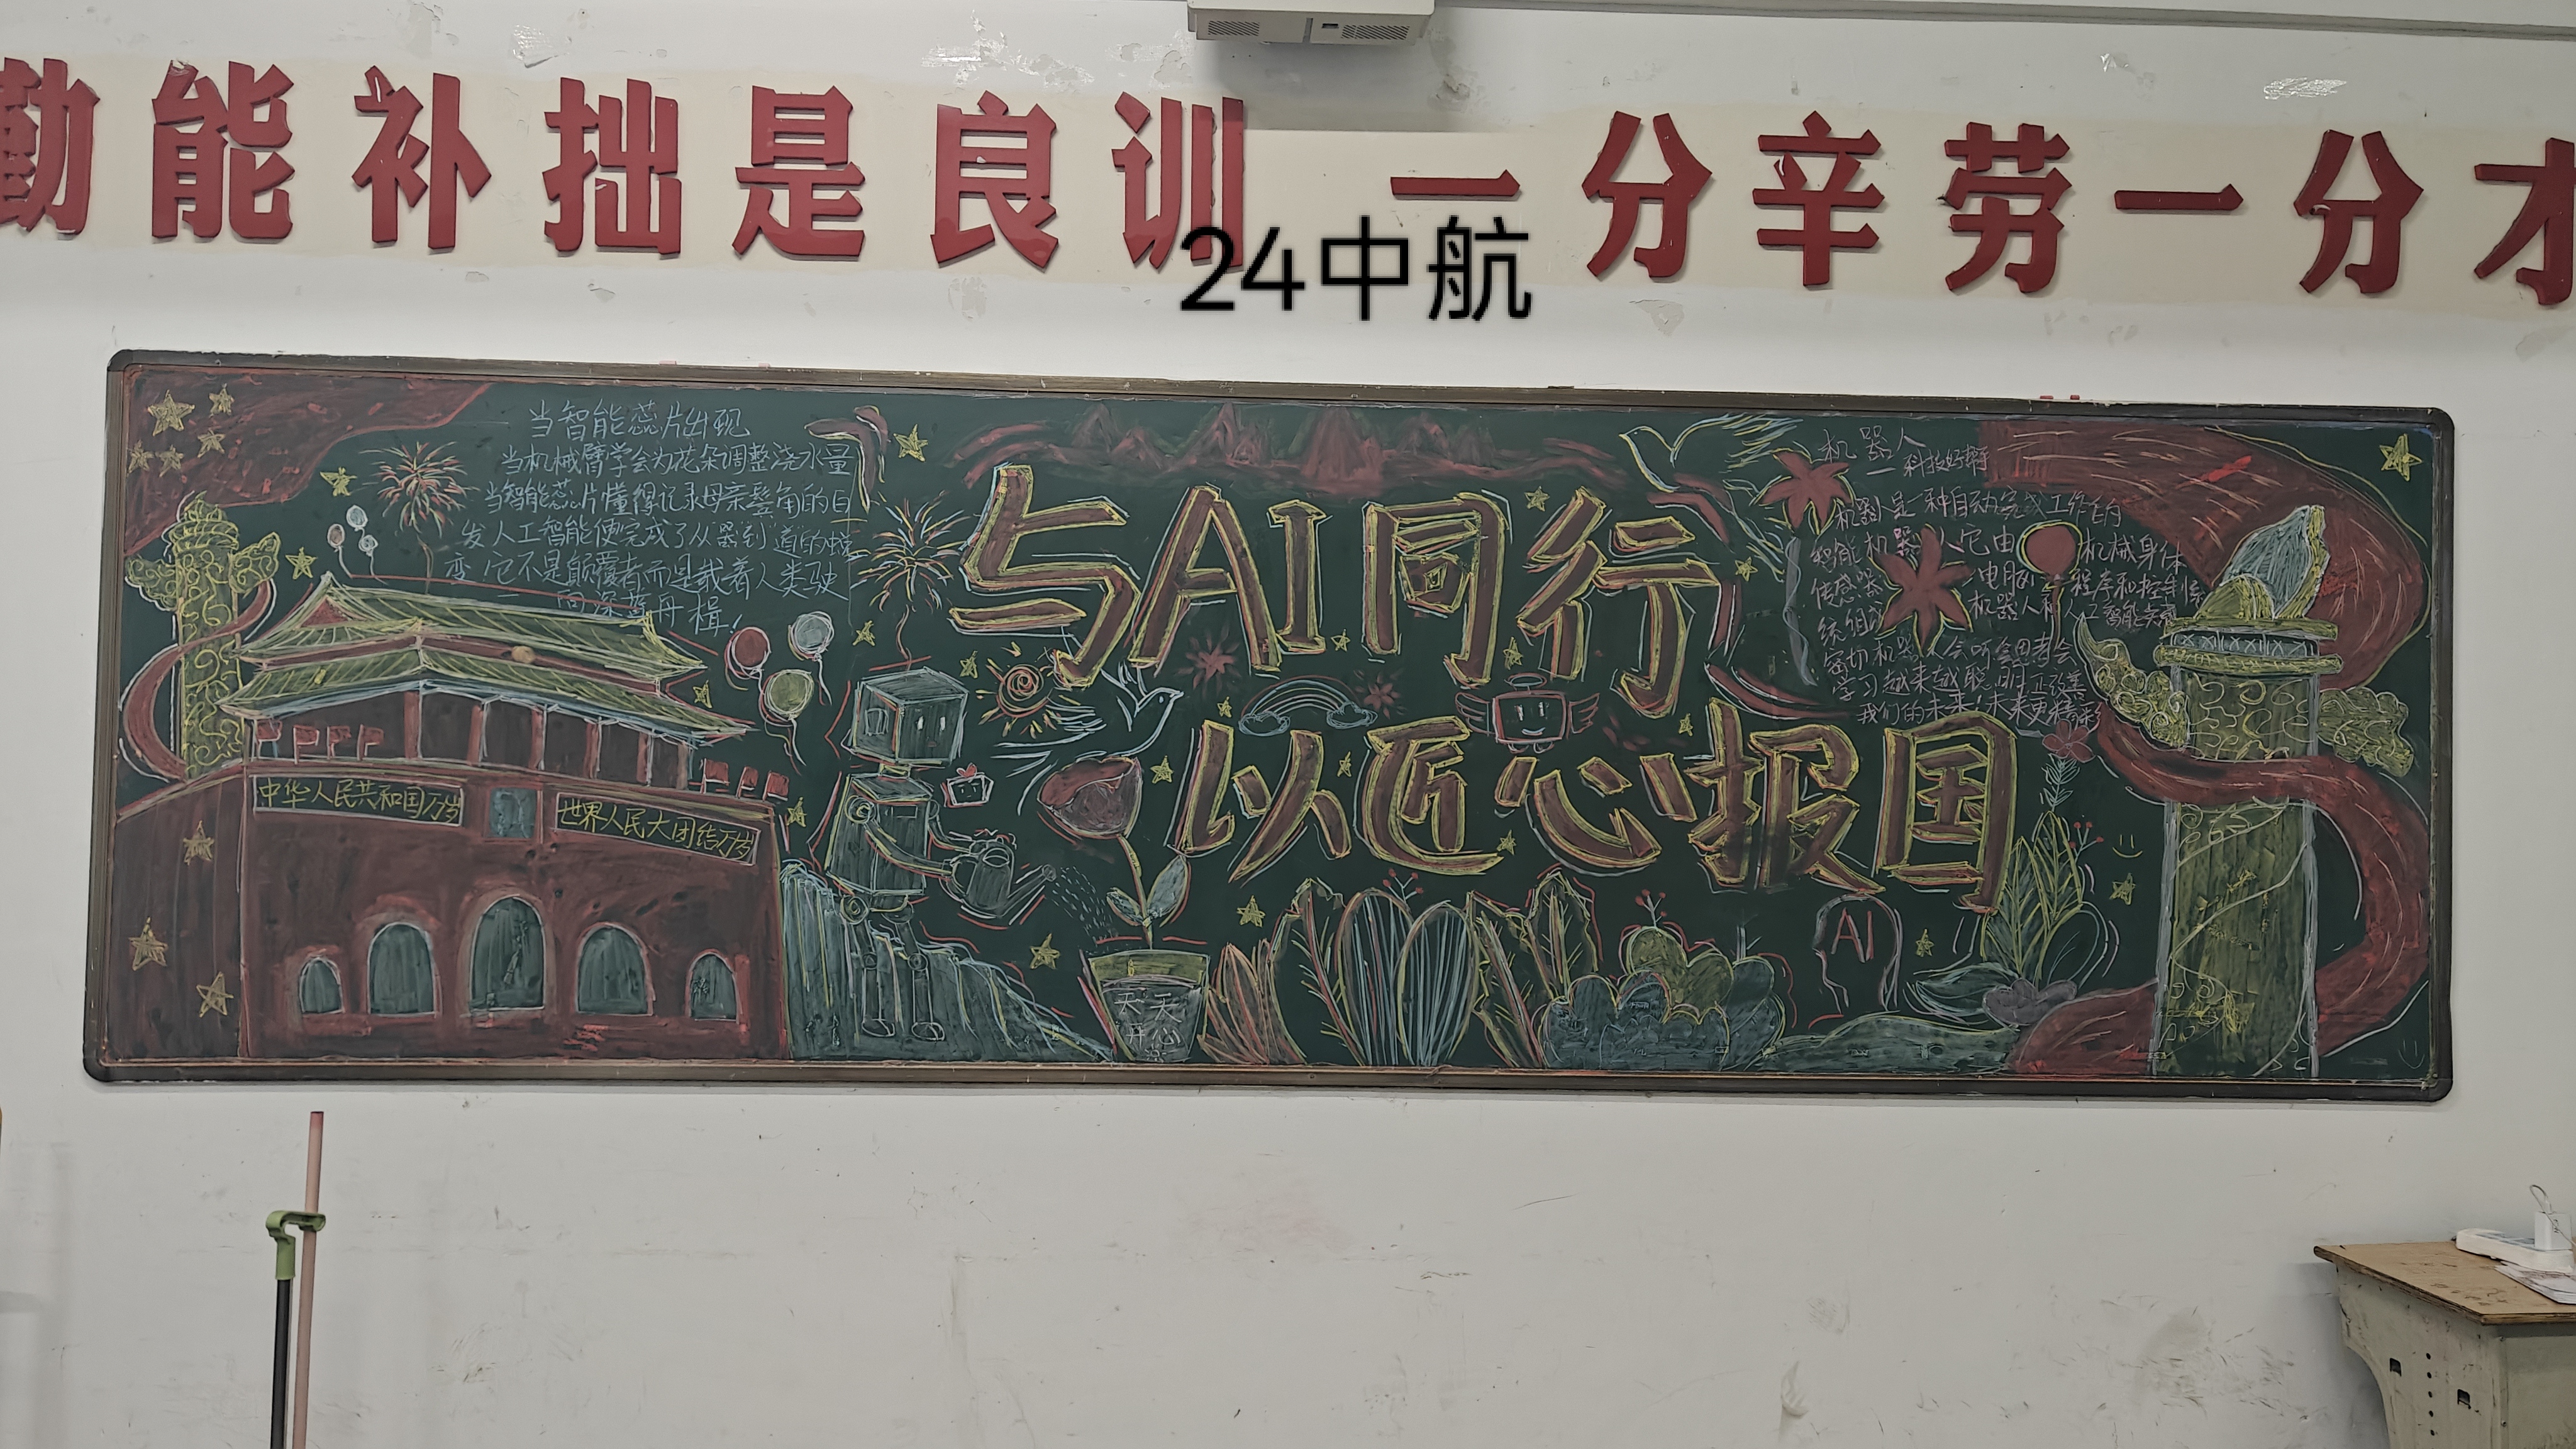 勤能补拙是良训 一分辛劳一分才
24中航
当智能蕊片出现
当机械臂学会为花朵调整浇水量
当智能蕊片懂得记录母亲鬓角的白
发人工智能便完成了从器到道的蜕
变,它不是颠覆者而是载着人类驶
向深蓝舟楫!
中华人民共和国万岁
世界人民大团结万岁
与AI同行
以匠心报国
天天
开心
AI
机器人
机器是一种自动完成工作的
智能机器人它由 机械身体
传感器 电脑 程序和控制
统组 机器人和人工智能关系
密切机器人会听会思考会
学习越来越聪明正改善
我们的未来!未来更精彩